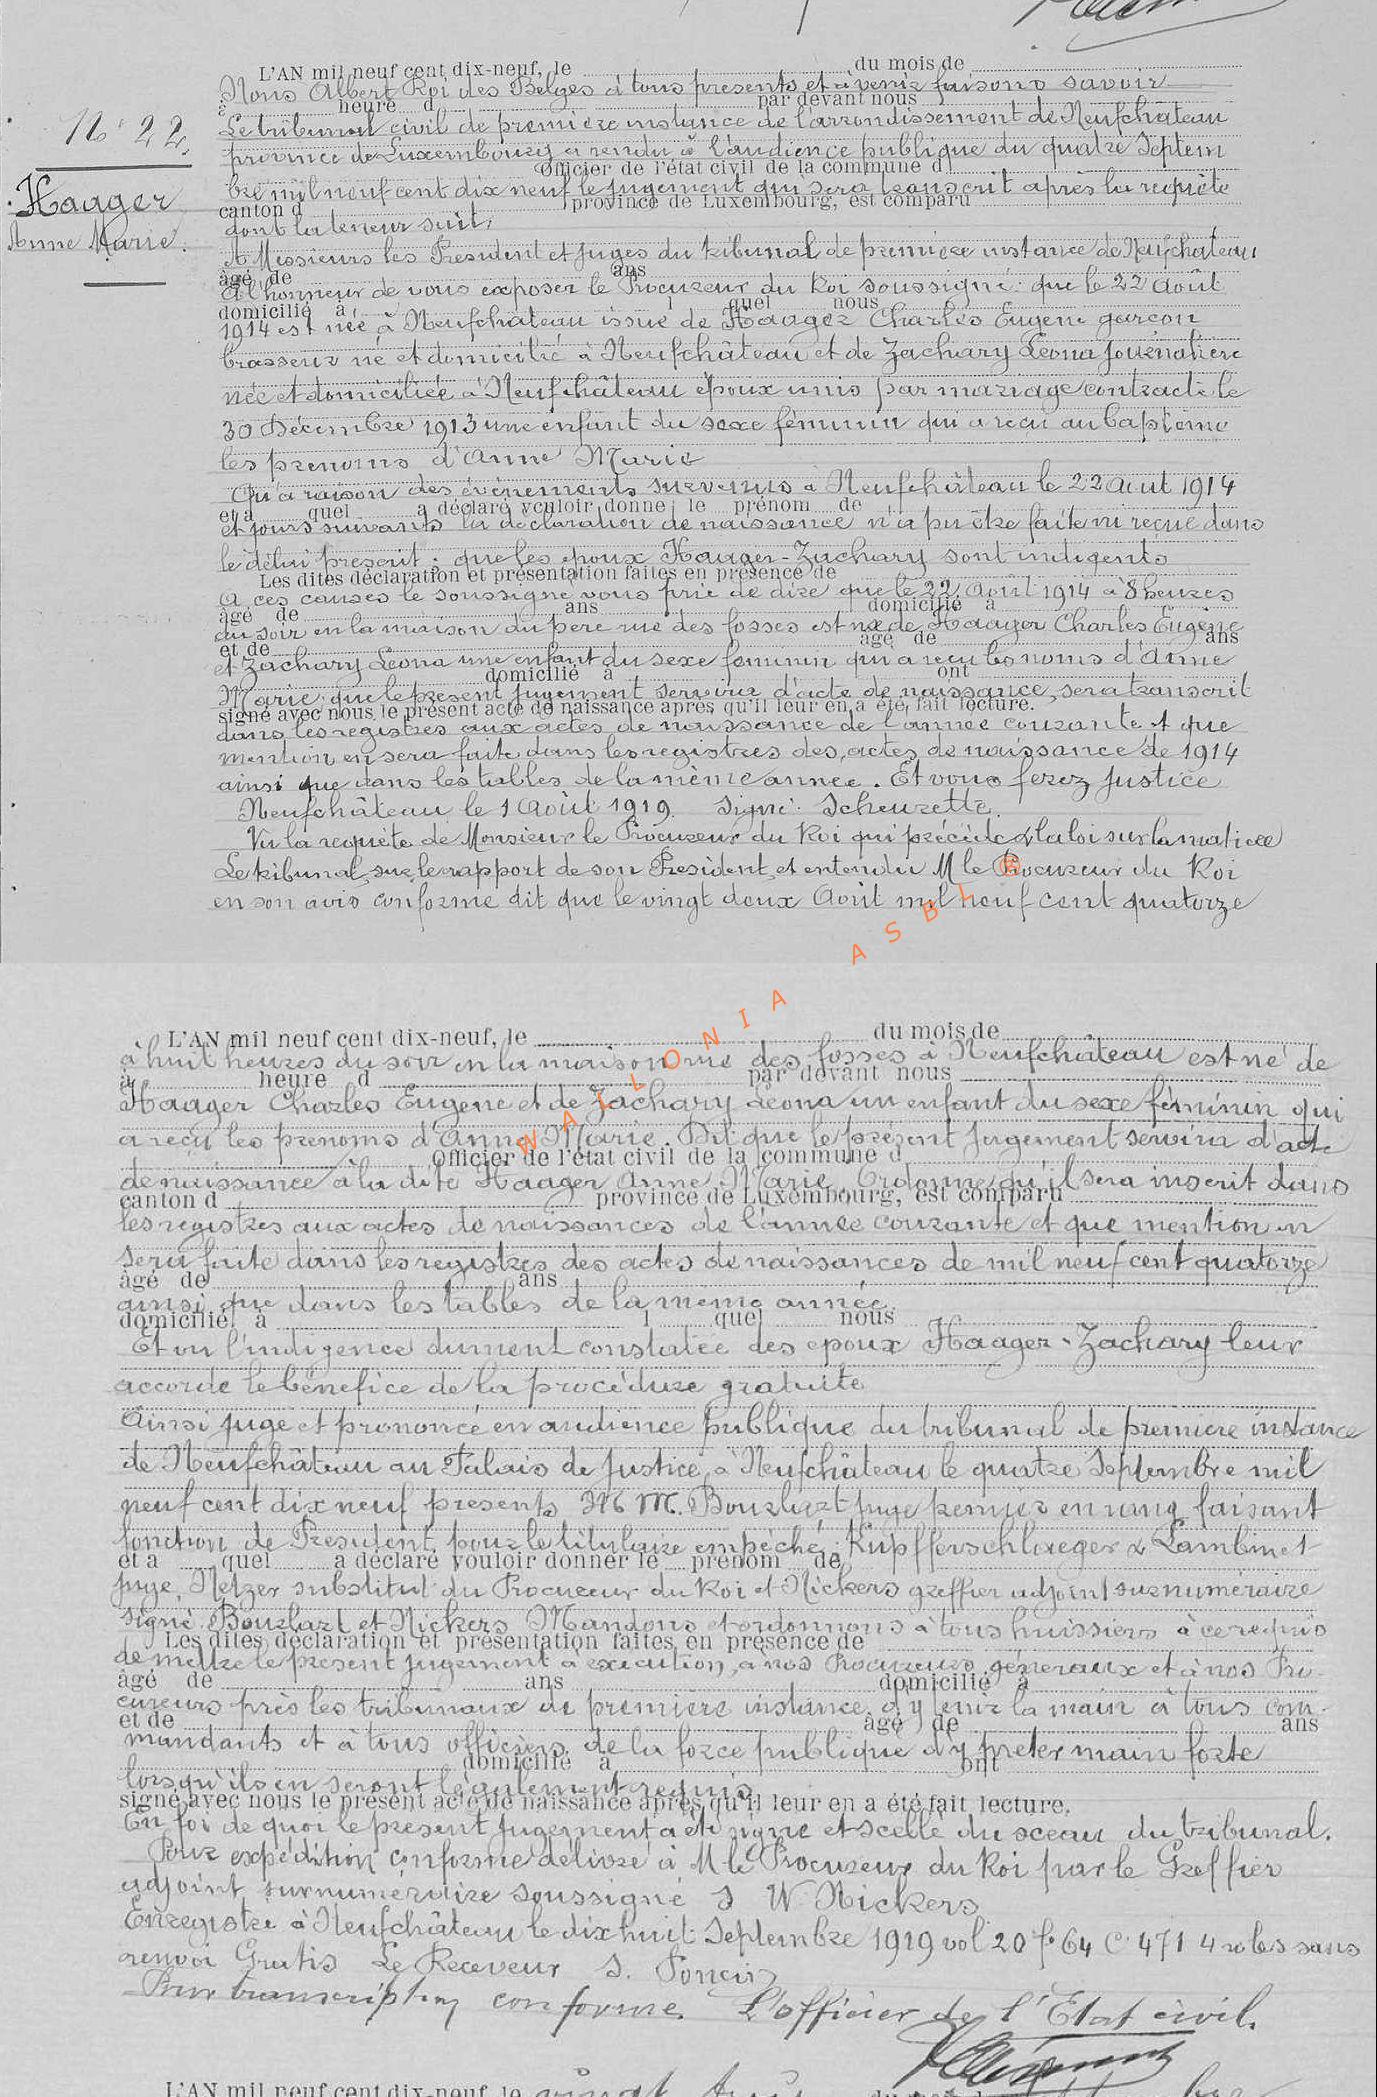 L'AN mil neuf cent dix-neuf, le du mois de
Nous Albert Roi des Belges à tous presents et à venir faisons savoir
à heure d par devant nous
N° 22.
Le tribunal civil de première instance de l'arrondissement de Neufchâteau
province de Luxembourg a rendu à l'audience publique du quatre Septem
Officier de l'état civil de la commune d
bre mil neuf cent dix neuf le jugement qui sera transcrit après la requête
Haager
canton d province de Luxembourg, est comparu
dont la teneur suit:
Anne Marie.
A Messieurs les President et juges du tribunal de première instance de Neufchateau
âgé de ans
A l'honneur de vous exposer le Procureur du Roi soussigné: que le 22 Août
domicilié à l quel nous
1914 est née à Neufchâteau issue de Haager Charles Eugène garçon
brasseur né et domicilié à Neufchâteau et de Zachary Leona journalière
née et domiciliée à Neufchâteau époux unis par mariage contracté le
30 Décembre 1913 une enfant du sexe féminin qui a reçu au baptême
les prenoms d'Anne Marie
Qu'a raison des évènements survenus à Neufchâteau le 22 Aout 1914
et a quel a déclaré vouloir donne le prénom de
et jours suivants la déclaration de naissance n'a pu être faite ni reçue dans
le délai prescrit; que les époux Haager-Zachary sont indigents
Les dites déclaration et présentation faites en présence de
A ces causes le soussigné vous prie de dire que le 22 Août 1914 à 8 heures
âgé de ans domicilié à
du soir en la maison du père rue des fosses est née de Haager Charles Eugène
et de âgé de ans
et Zachary Leona une enfant du sexe feminin qui a reçu les noms d'Anne
domicilié à ont
Marie; que le present jugement servira d'acte de naissance, sera transcrit
signé avec nous le présent acte de naissance après qu'il leur en a été fait lecture.
dans les registres aux actes de naissance de l'année courante et que
mention en sera faite dans les registres des actes de naissance de 1914
ainsi que dans les tables de la même année. Et vous ferez justice
Neufchâteau le 1 Août 1919. Signé: Scheurette.
Vu la requête de Monsieur le Procureur du Roi qui précède & la loi sur la matière
Le tribunal sur le rapport de son President et entendu M le Procureur du Roi
en son avis conforme dit que le vingt deux Août mil neuf cent quatorze
WALLONIA ASBL ®
L'AN mil neuf cent dix-neuf, le du mois de
à huit heures du soir en la maison rue des fosses à Neufchâteau est né de
à heure d par devant nous
Haager Charles Eugene et de Zachary Leona un enfant du sexe féminin qui
a reçu les prenoms d'Anne Marie. Dit que le présent jugement servira d'acte
Officier de l'état civil de la commune d
de naissance à la dite Haager Anne Marie. Ordonne qu'il sera inscrit dans
canton d province de Luxembourg, est comparu
les registres aux actes de naissances de l'année courante et que mention en
sera faite dans les registres des actes de naissances de mil neuf cent quatorze
âgé de ans
ainsi que dans les tables de la meme année.
domicilié à l quel nous
Et vu l'indigence dument constatée des epoux Haager-Zachary leur
accorde le bénéfice de la procédure gratuite
Ainsi juge et prononcé en audience publique du tribunal de premiere instance
de Neufchâteau au Palais de Justice, à Neufchâteau le quatre Septembre mil
neuf cent dix neuf presents M M. Bourlart juge premier en rang faisant
fonction de President, pour le titulaire empêché, Kupfferschlaeger & Lambinet
et a quel a déclaré vouloir donner le prénom de
juge, Netzer substitut du Procureur du Roi et Nickers greffier adjoint surnuméraire
signé Bourlart et Nickers Mandons et ordonnons à tous huissiers à ce requis
Les dites déclaration et présentation faites en présence de
de mettre le present jugement à execution, à nos Procureurs géneraux et à nos Pro-
âgé de ans domicilié à
cureurs près les tribunaux de première instance d'y tenir la main à tous com-
et de âgé de ans
mandants et à tous officiers de la force publique d'y preter main forte
domicilié à ont
lorsqu'ils en seront légalement requis
signé avec nous le présent acte de naissance après qu'il leur en a été fait lecture.
En foi de quoi le present jugement a été signé et scellé du sceau du tribunal.
Pour expédition conforme délivré à M le Procureur du Roi par le Greffier
adjoint surnuméraire soussigné S W. Nickers
Enregistré à Neufchâteau le dix huit Septembre 1919 vol 20 f° 64 C 471 4 roles sans
renvoi Gratis Le Receveur S. Poncin
Pour transcription conforme. L'officier de l'Etat civil.
L'AN mil neuf cent dix-neuf, le vingt